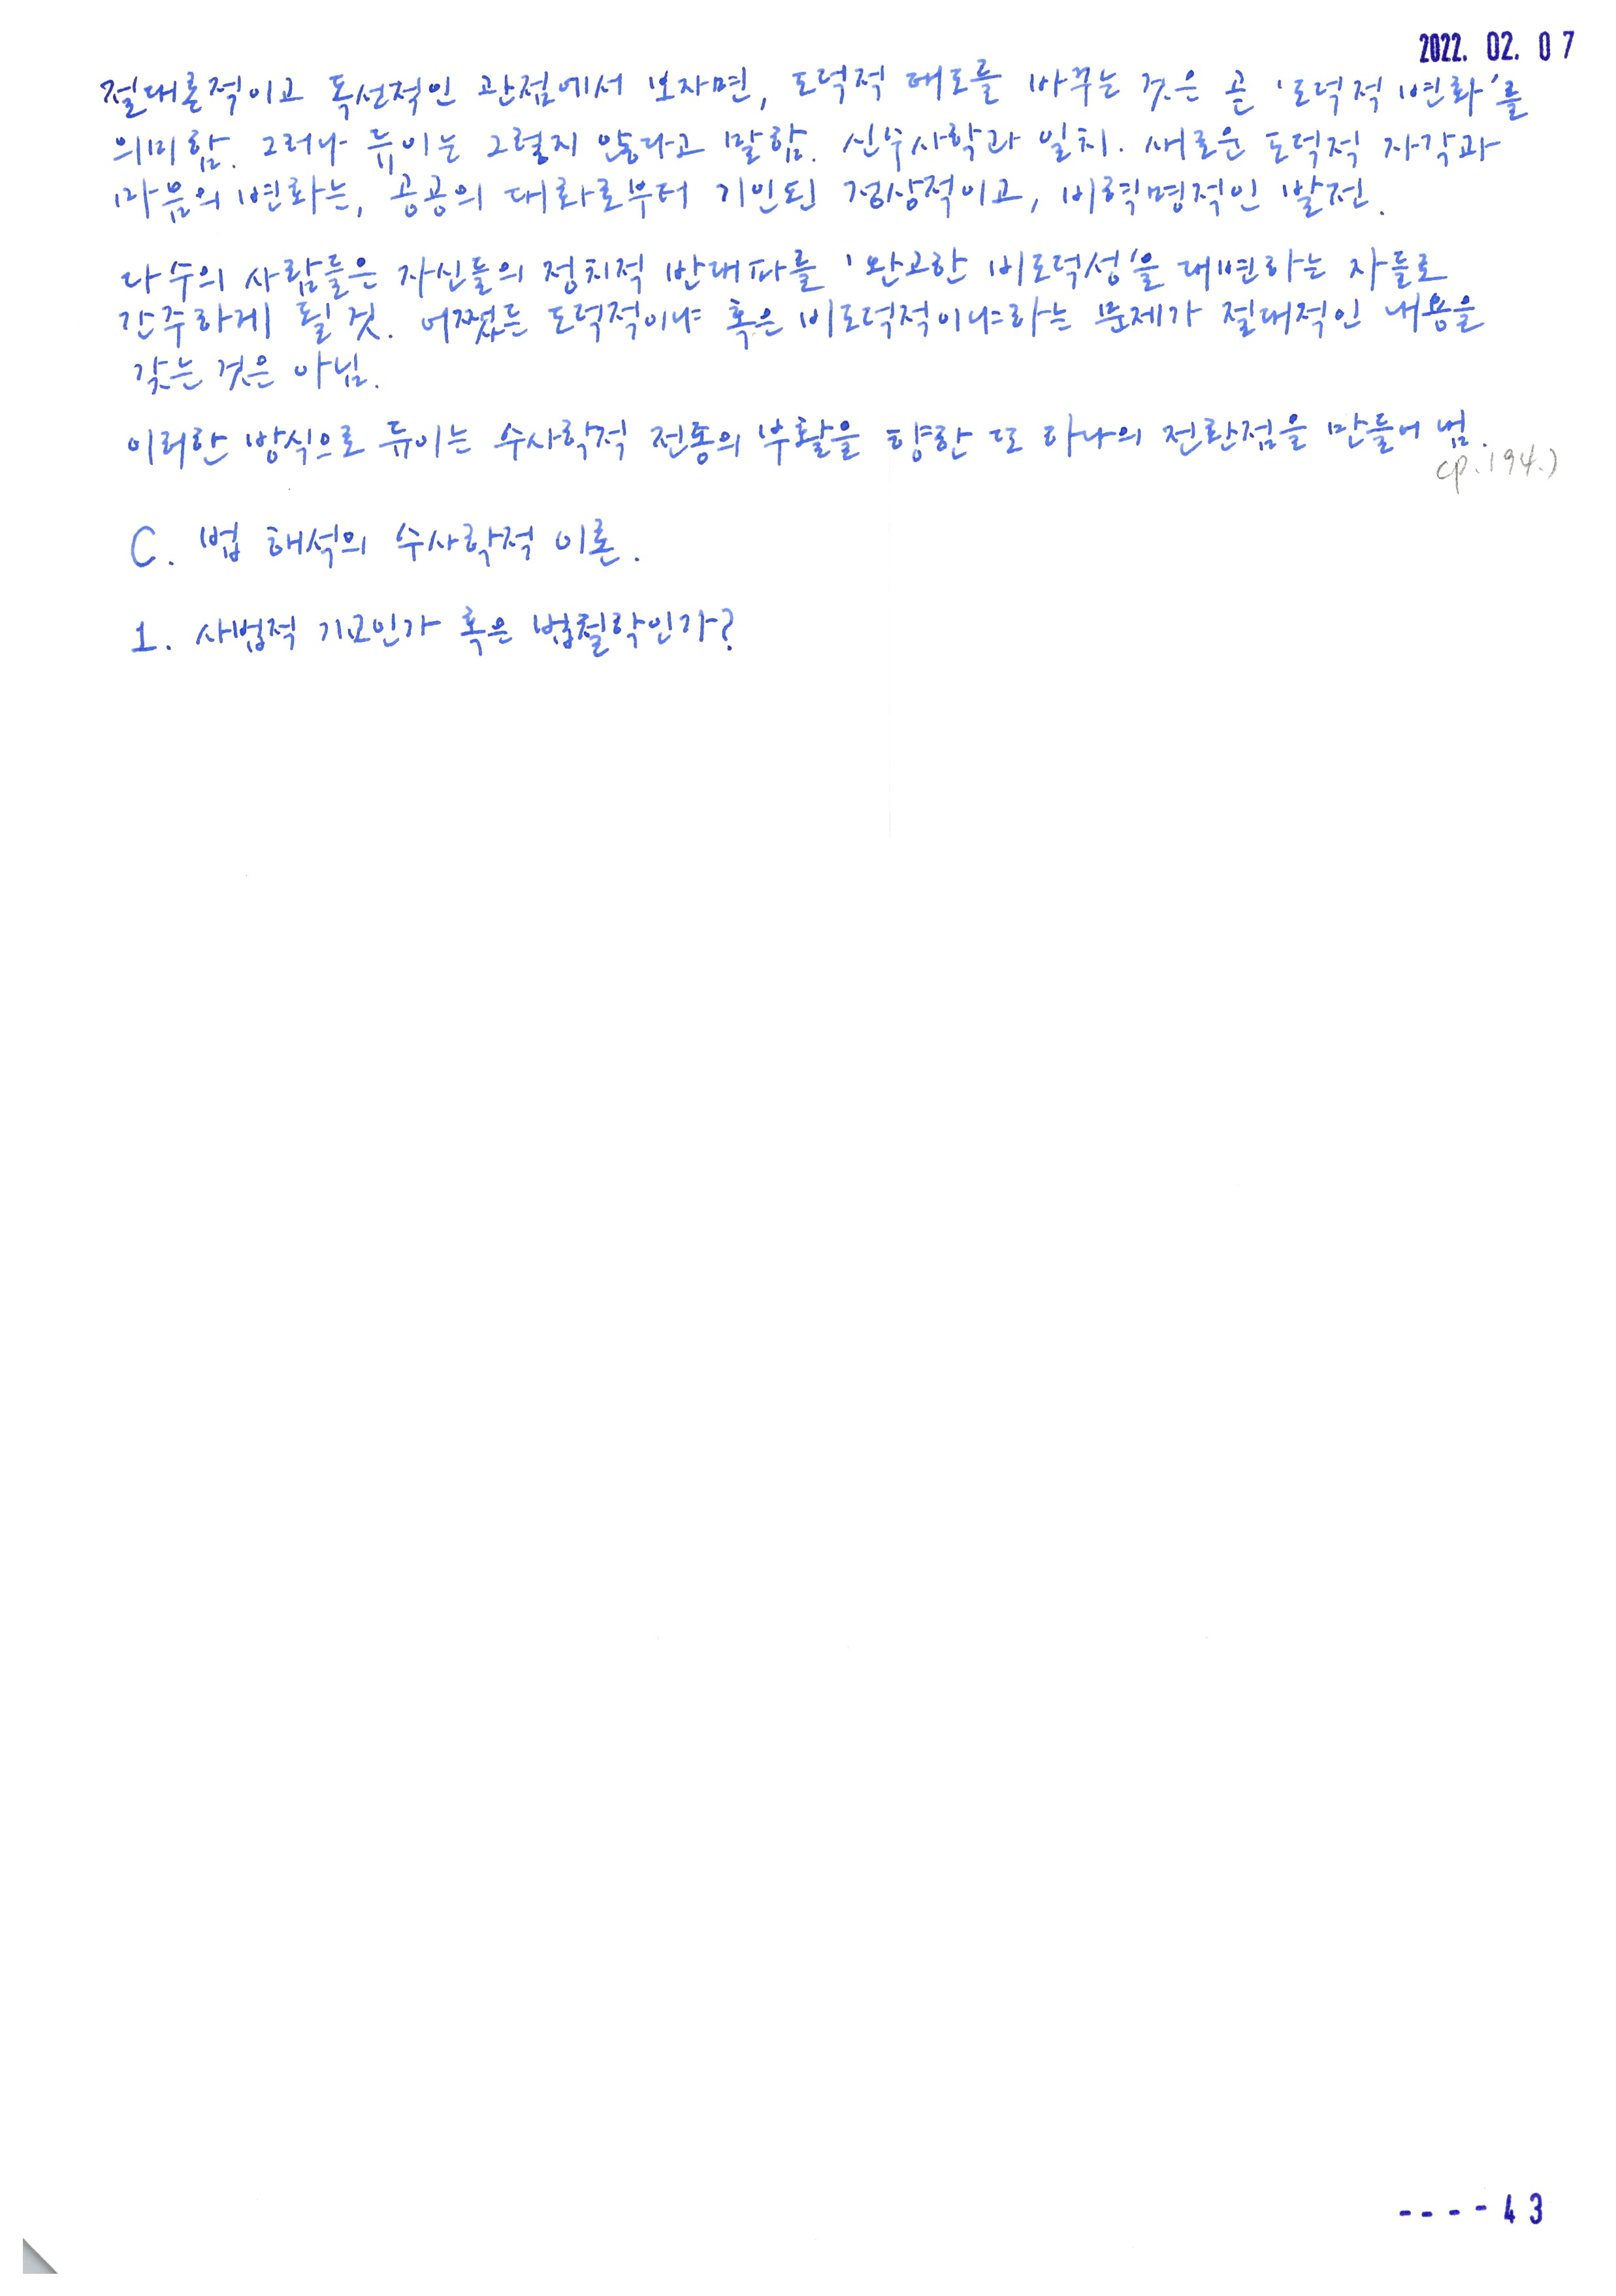 2022. 02. 07
절대론적이고 독선적인 관점에서 보자면, 도덕적 태도를 바꾸는 것은 곧 '도덕적 변화'를
의미함. 그러나 듀이는 그렇지 않다고 말함. 신수사학과 일치. 새로운 도덕적 자각과
마음의 변화는, 공공의 대화로부터 기인된 정상적이고, 비혁명적인 발전.
다수의 사람들은 자신들의 정치적 반대파를 '완고한 비도덕성'을 대변하는 자들로
간주하게 될 것. 어쨌든 도덕적이냐 혹은 비도덕적이냐하는 문제가 절대적인 내용을
갖는 것은 아님.
이러한 방식으로 듀이는 수사학적 전통의 부활을 향한 또 하나의 전환점을 만들어 냄.
(p.194.)
C. 법 해석의 수사학적 이론.
1. 사법적 기교인가 혹은 법철학인가?
----43